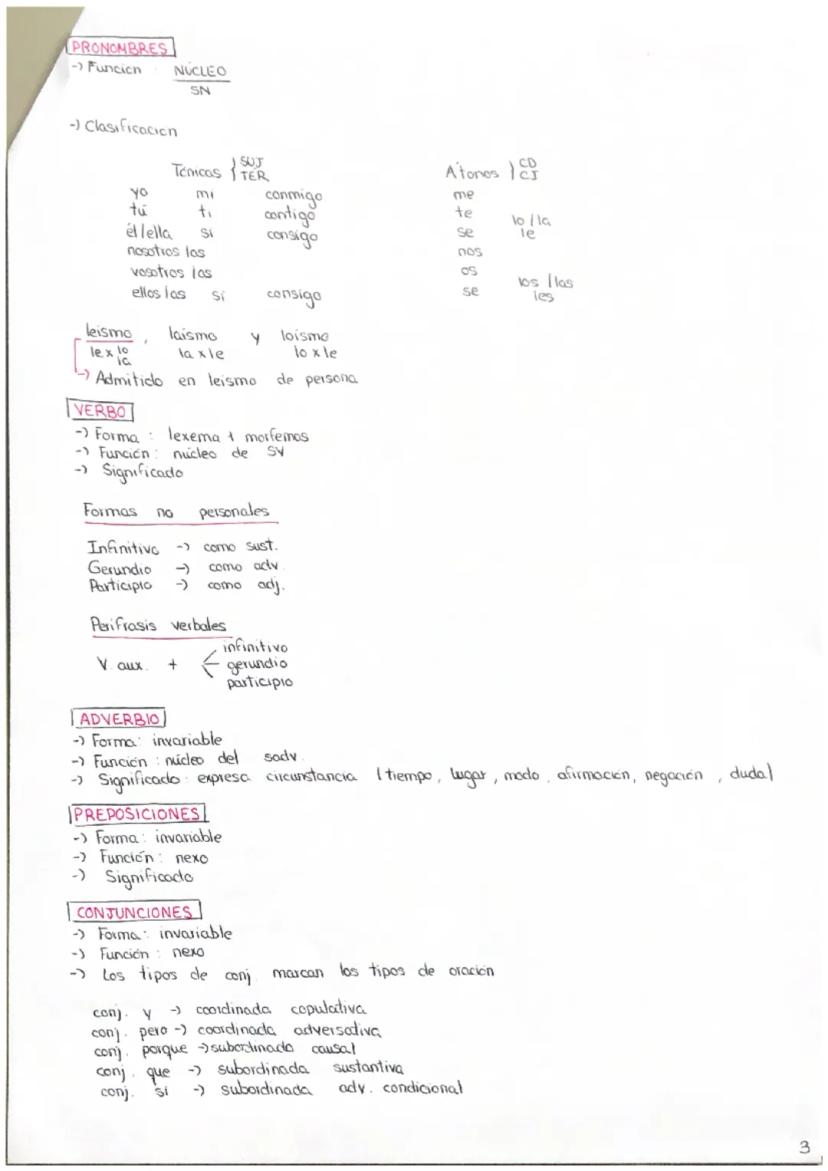 PRONOMBRES
-> Función NÚCLEO
SN
-> Clasificación
Tónicas } SUJ
TER
yo mí conmigo
tú ti contigo
él/ella sí consigo
nosotros/as
vosotros/as
ellos/as sí consigo
Átonos } CD
CI
me
te lo/la
se le
nos
os los/las
se les
leísmo, laísmo y loísmo
le x lo la x le lo x le
la
-> Admitido en leísmo de persona
VERBO
-> Forma: lexema + morfemas
-> Función: núcleo de SV
-> Significado
Formas no personales
Infinitivo -> como sust.
Gerundio -> como adv.
Participio -> como adj.
Perífrasis verbales
V aux. + infinitivo
gerundio
participio
ADVERBIO
-> Forma: invariable
-> Función: núcleo del sadv.
-> Significado: expresa circunstancia (tiempo, lugar, modo, afirmación, negación, duda)
PREPOSICIONES
-> Forma: invariable
-> Función: nexo
-> Significado
CONJUNCIONES
-> Forma: invariable
-> Función: nexo
-> Los tipos de conj. marcan los tipos de oración
conj. y -> coordinada copulativa
conj. pero -> coordinada adversativa
conj. porque -> subordinada causal
conj. que -> subordinada sustantiva
conj. si -> subordinada adv. condicional
3